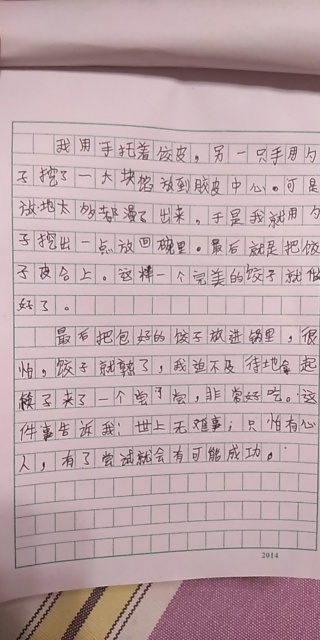 我用手托着饺皮。另一只手用勺
子挖了一大块馅放到皮中心。可是
放地太多都漫了出来。于是我就用勺
子挖出一点放回碗里。最后就是把饺
子皮合上。这样一个完美的饺子就做
好了。
最后把包好的饺子放进锅里，很
怕，饺子就熟了，我迫不及待地拿起
筷子来了一个尝了尝，非常好吃。这
件事告诉我：世上无难事；只怕有心
人，有了尝试就会有可能成功。
2014